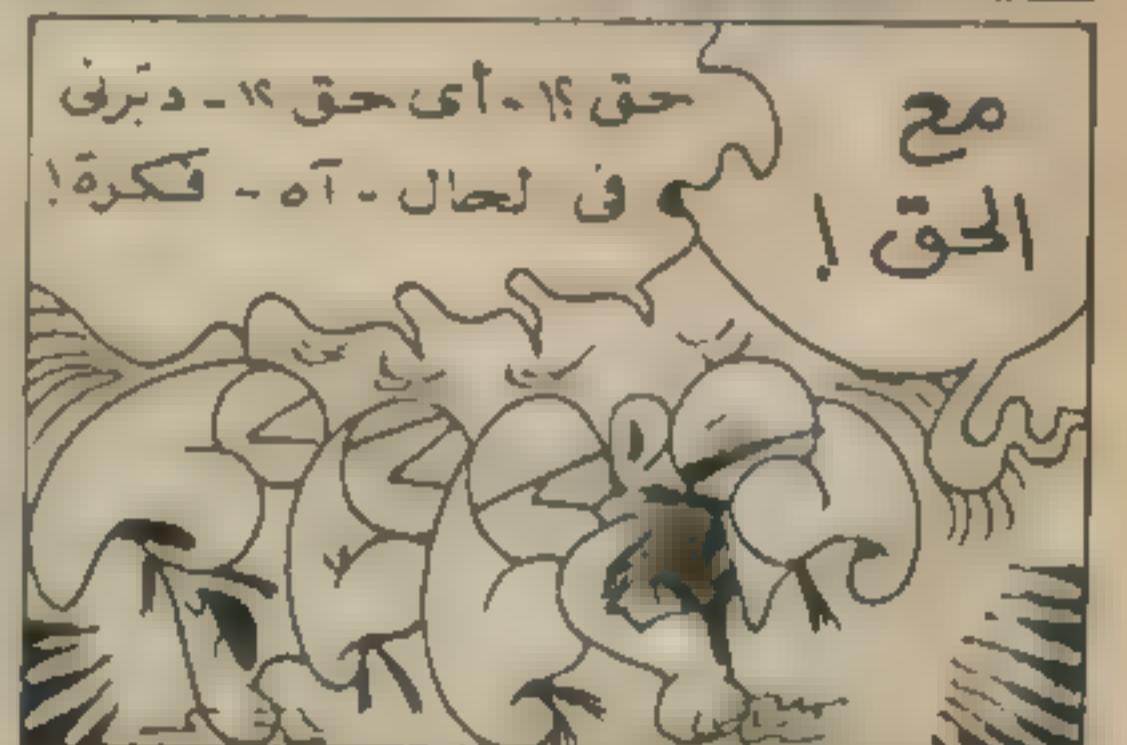 مع
الحق !
حق ؟! - أى حق ؟! - دبرنى
فى لحال - آه - فكرة !